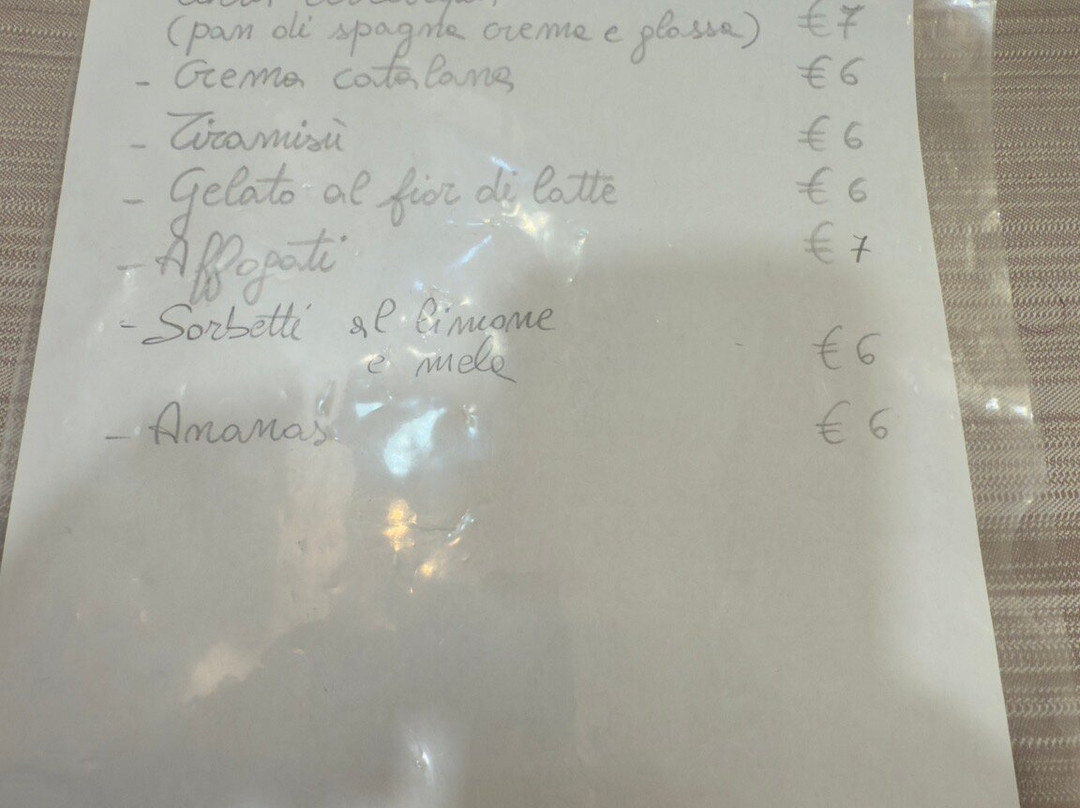 (pan di spagna crema e glassa) € 7
- Crema catalana € 6
- Tiramisù € 6
- Gelato al fior di latte € 6
- Affogati € 7
- Sorbetti al limone
e mela € 6
- Ananas € 6